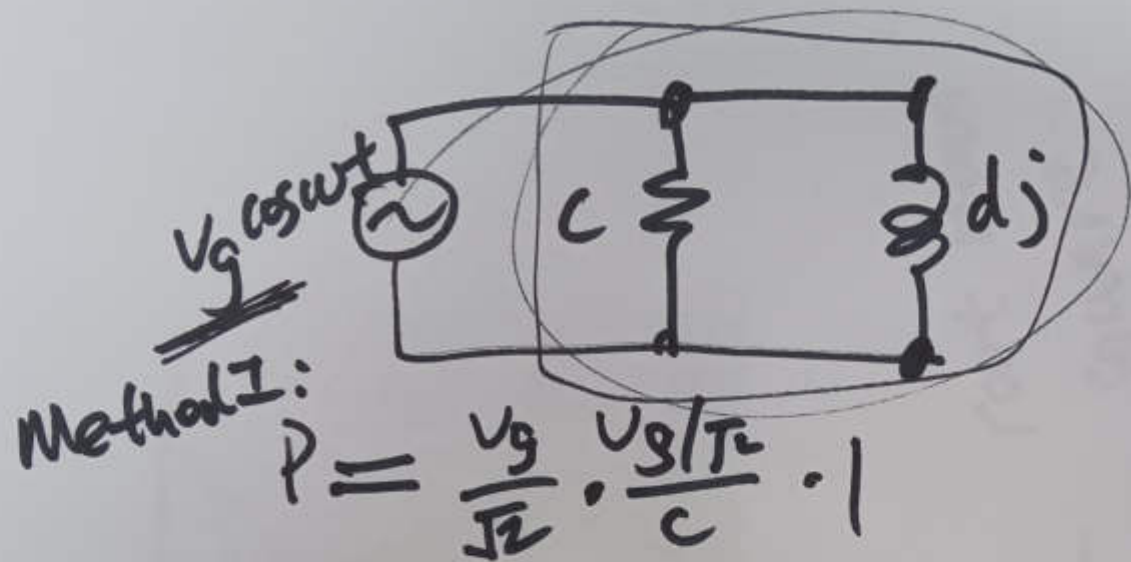 Vg cos ωt
C
dj
Method I:
P = Vg/√2 · Vg/√2/C · 1